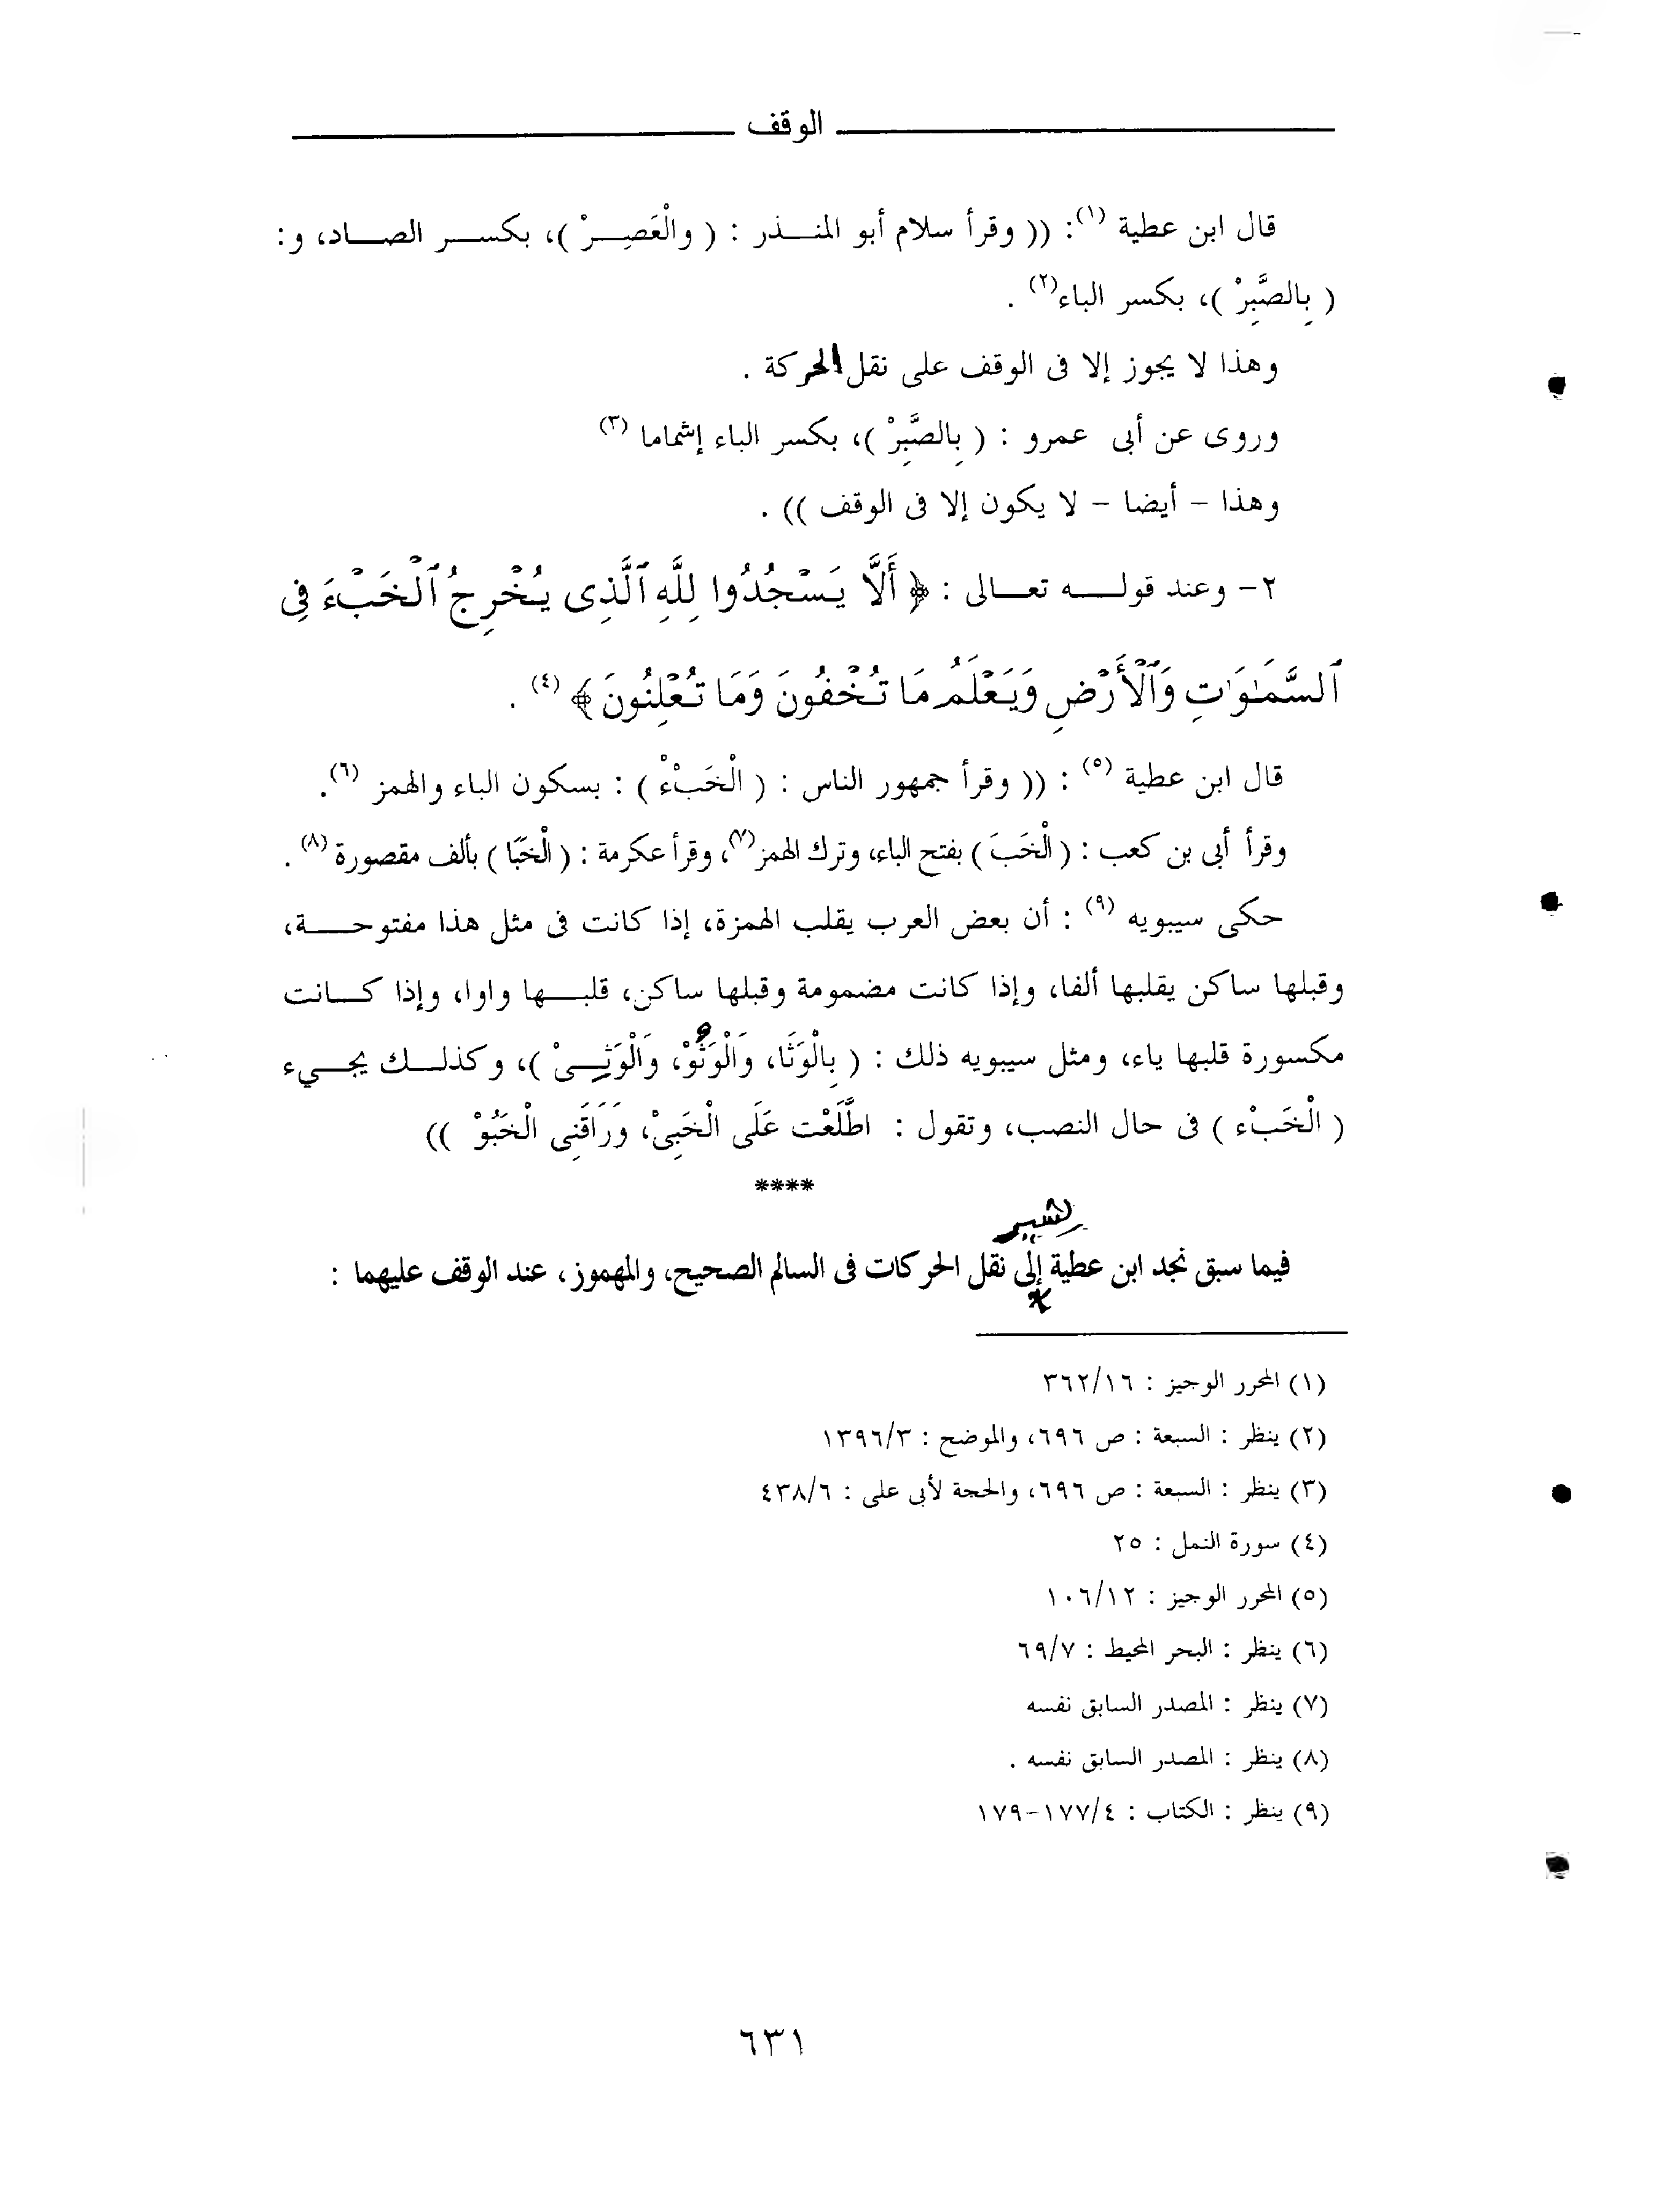 الوقف
قال ابن عطية (١): (( وقرأ سلام أبو المنـــذر : ( والْعَصِـــرْ )، بكســـر الصـــاد، و:
( بِالصَّبِرْ )، بكسر الباء(٢) .
وهذا لا يجوز إلا فى الوقف على نقل الحركة .
وروى عن أبى عمرو : ( بِالصَّبِرْ )، بكسر الباء إشماما (٣)
وهذا – أيضا – لا يكون إلا فى الوقف )) .
٢- وعند قولـــه تعـــالى : ﴿ أَلَّا يَسْجُدُوا لِلَّهِ ٱلَّذِى يُخْرِجُ ٱلْخَبْءَ فِى
ٱلسَّمَـٰوَٰتِ وَٱلْأَرْضِ وَيَعْلَمُ مَا تُخْفُونَ وَمَا تُعْلِنُونَ ﴾ (٤) .
قال ابن عطية (٥) : (( وقرأ جمهور الناس : ( الْخَبْءْ ) : بسكون الباء والهمز (٦).
وقرأ أبى بن كعب : ( الْخَبَ ) بفتح الباء، وترك الهمز(٧)، وقرأ عكرمة : ( الْخَبَا ) بألف مقصورة (٨) .
حكى سيبويه (٩) : أن بعض العرب يقلب الهمزة، إذا كانت فى مثل هذا مفتوحـــة،
وقبلها ساكن يقلبها ألفا، وإذا كانت مضمومة وقبلها ساكن، قلبـــها واوا، وإذا كـــانت
مكسورة قلبها ياء، ومثل سيبويه ذلك : ( بِالْوَثَا، وَالْوَثُوْ، وَالْوَثِـــىْ )، وكذلـــك يجـــيء
( الْخَبْء ) فى حال النصب، وتقول : اطَّلَعْت عَلَى الْخَبِىْ، وَرَاقَنِى الْخَبُوْ ))
****
لشير
فيما سبق نجد ابن عطية إلى نقل الحركات فى السالم الصحيح، والمهموز، عند الوقف عليهما :
(١) المحرر الوجيز : ٣٦٢/١٦
(٢) ينظر : السبعة : ص ٦٩٦، والموضح : ١٣٩٦/٣
(٣) ينظر : السبعة : ص ٦٩٦، والحجة لأبى على : ٤٣٨/٦
(٤) سورة النمل : ٢٥
(٥) المحرر الوجيز : ١٠٦/١٢
(٦) ينظر : البحر المحيط : ٦٩/٧
(٧) ينظر : المصدر السابق نفسه
(٨) ينظر : المصدر السابق نفسه .
(٩) ينظر : الكتاب : ١٧٧/٤-١٧٩
٦٣١